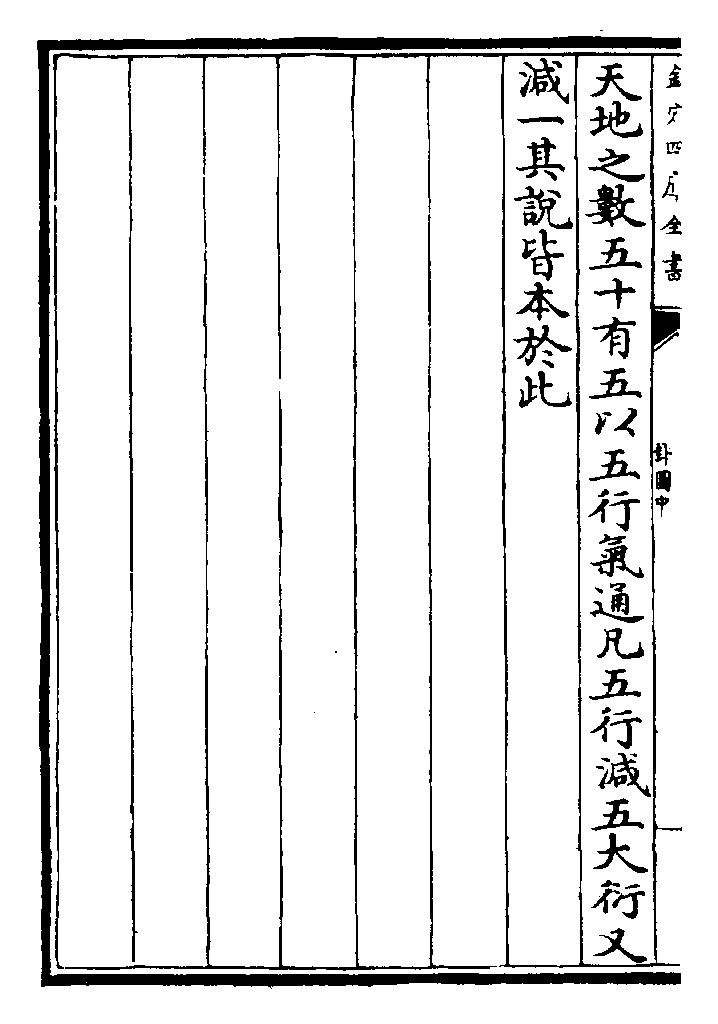 欽定四庫全書
卦圖中
天地之數五十有五以五行氣通凡五行減五大衍又
減一其說皆本於此